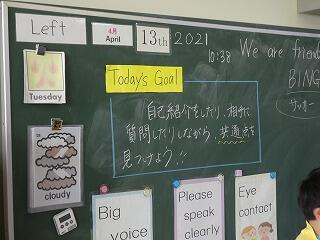 Left
4月
April
13th
2021
10:38
We are friends
BINGO
サッカー
Tuesday
Today's Goal
自己紹介をしたり、相手に
質問したりしながら、共通点を
見つけよう!!
cloudy
Big
voice
Please
speak
clearly
Eye
contact